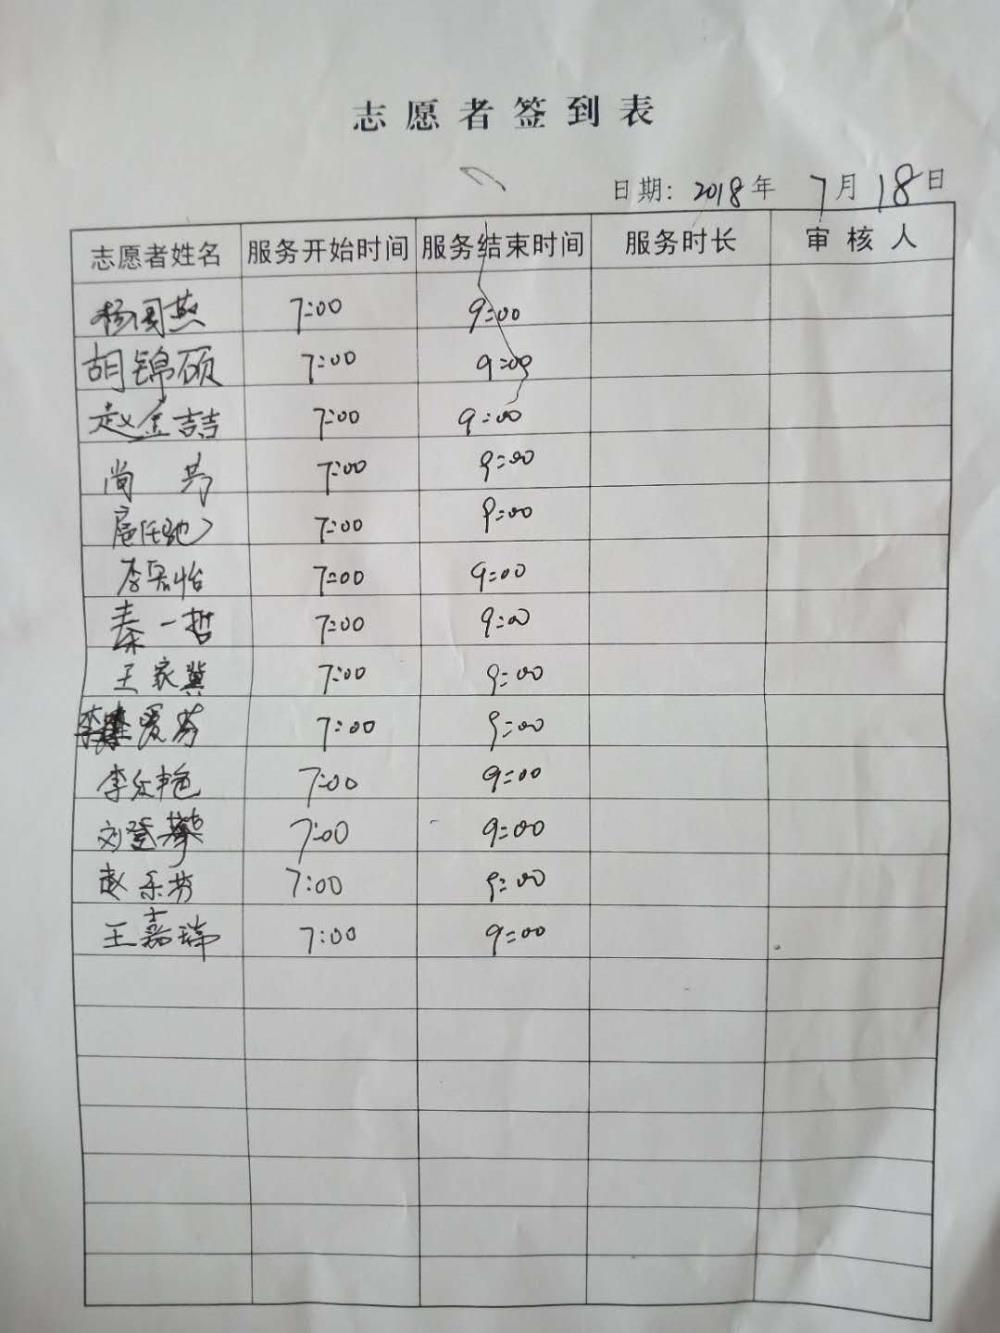 志愿者签到表
日期: 2018年 7月18日
志愿者姓名 服务开始时间 服务结束时间 服务时长 审核人
杨国燕 7:00 9:00
胡锦硕 7:00 9:00
赵金喆 7:00 9:00
尚 7:00 9:00
扈任驰 7:00 9:00
李 怡 7:00 9:00
秦一哲 7:00 9:00
王家冀 7:00 9:00
李爱芬 7:00 9:00
李红艳 7:00 9:00
刘登 7:00 9:00
赵乐芬 7:00 9:00
王嘉瑞 7:00 9:00